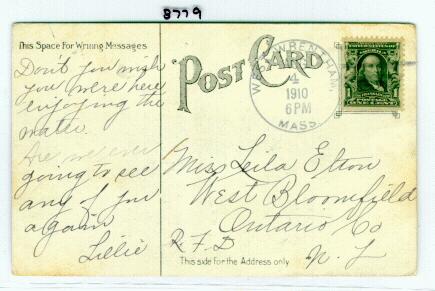 8779
This Space For Writing Messages
POST CARD
Don't you wish
you were here
enjoying the
water.
Are we ever
going to see
any of you
again
Lillie
WRENTHAM,
4
1910
6 PM
MASS.
1
ONE CENT
1
Miss Leila Elton
West Bloomfield
Ontario Co
R F D
N. Y.
This side for the Address only